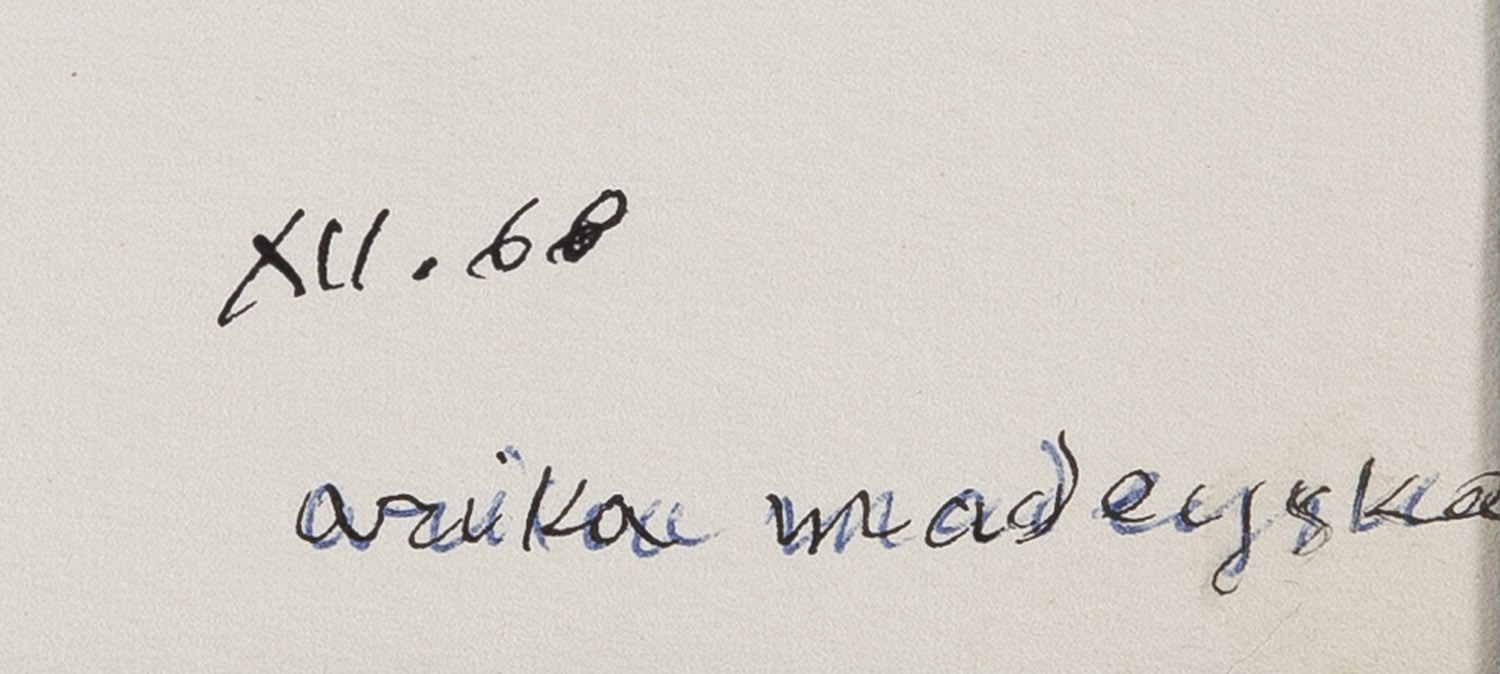 XII.68
arika madeyska